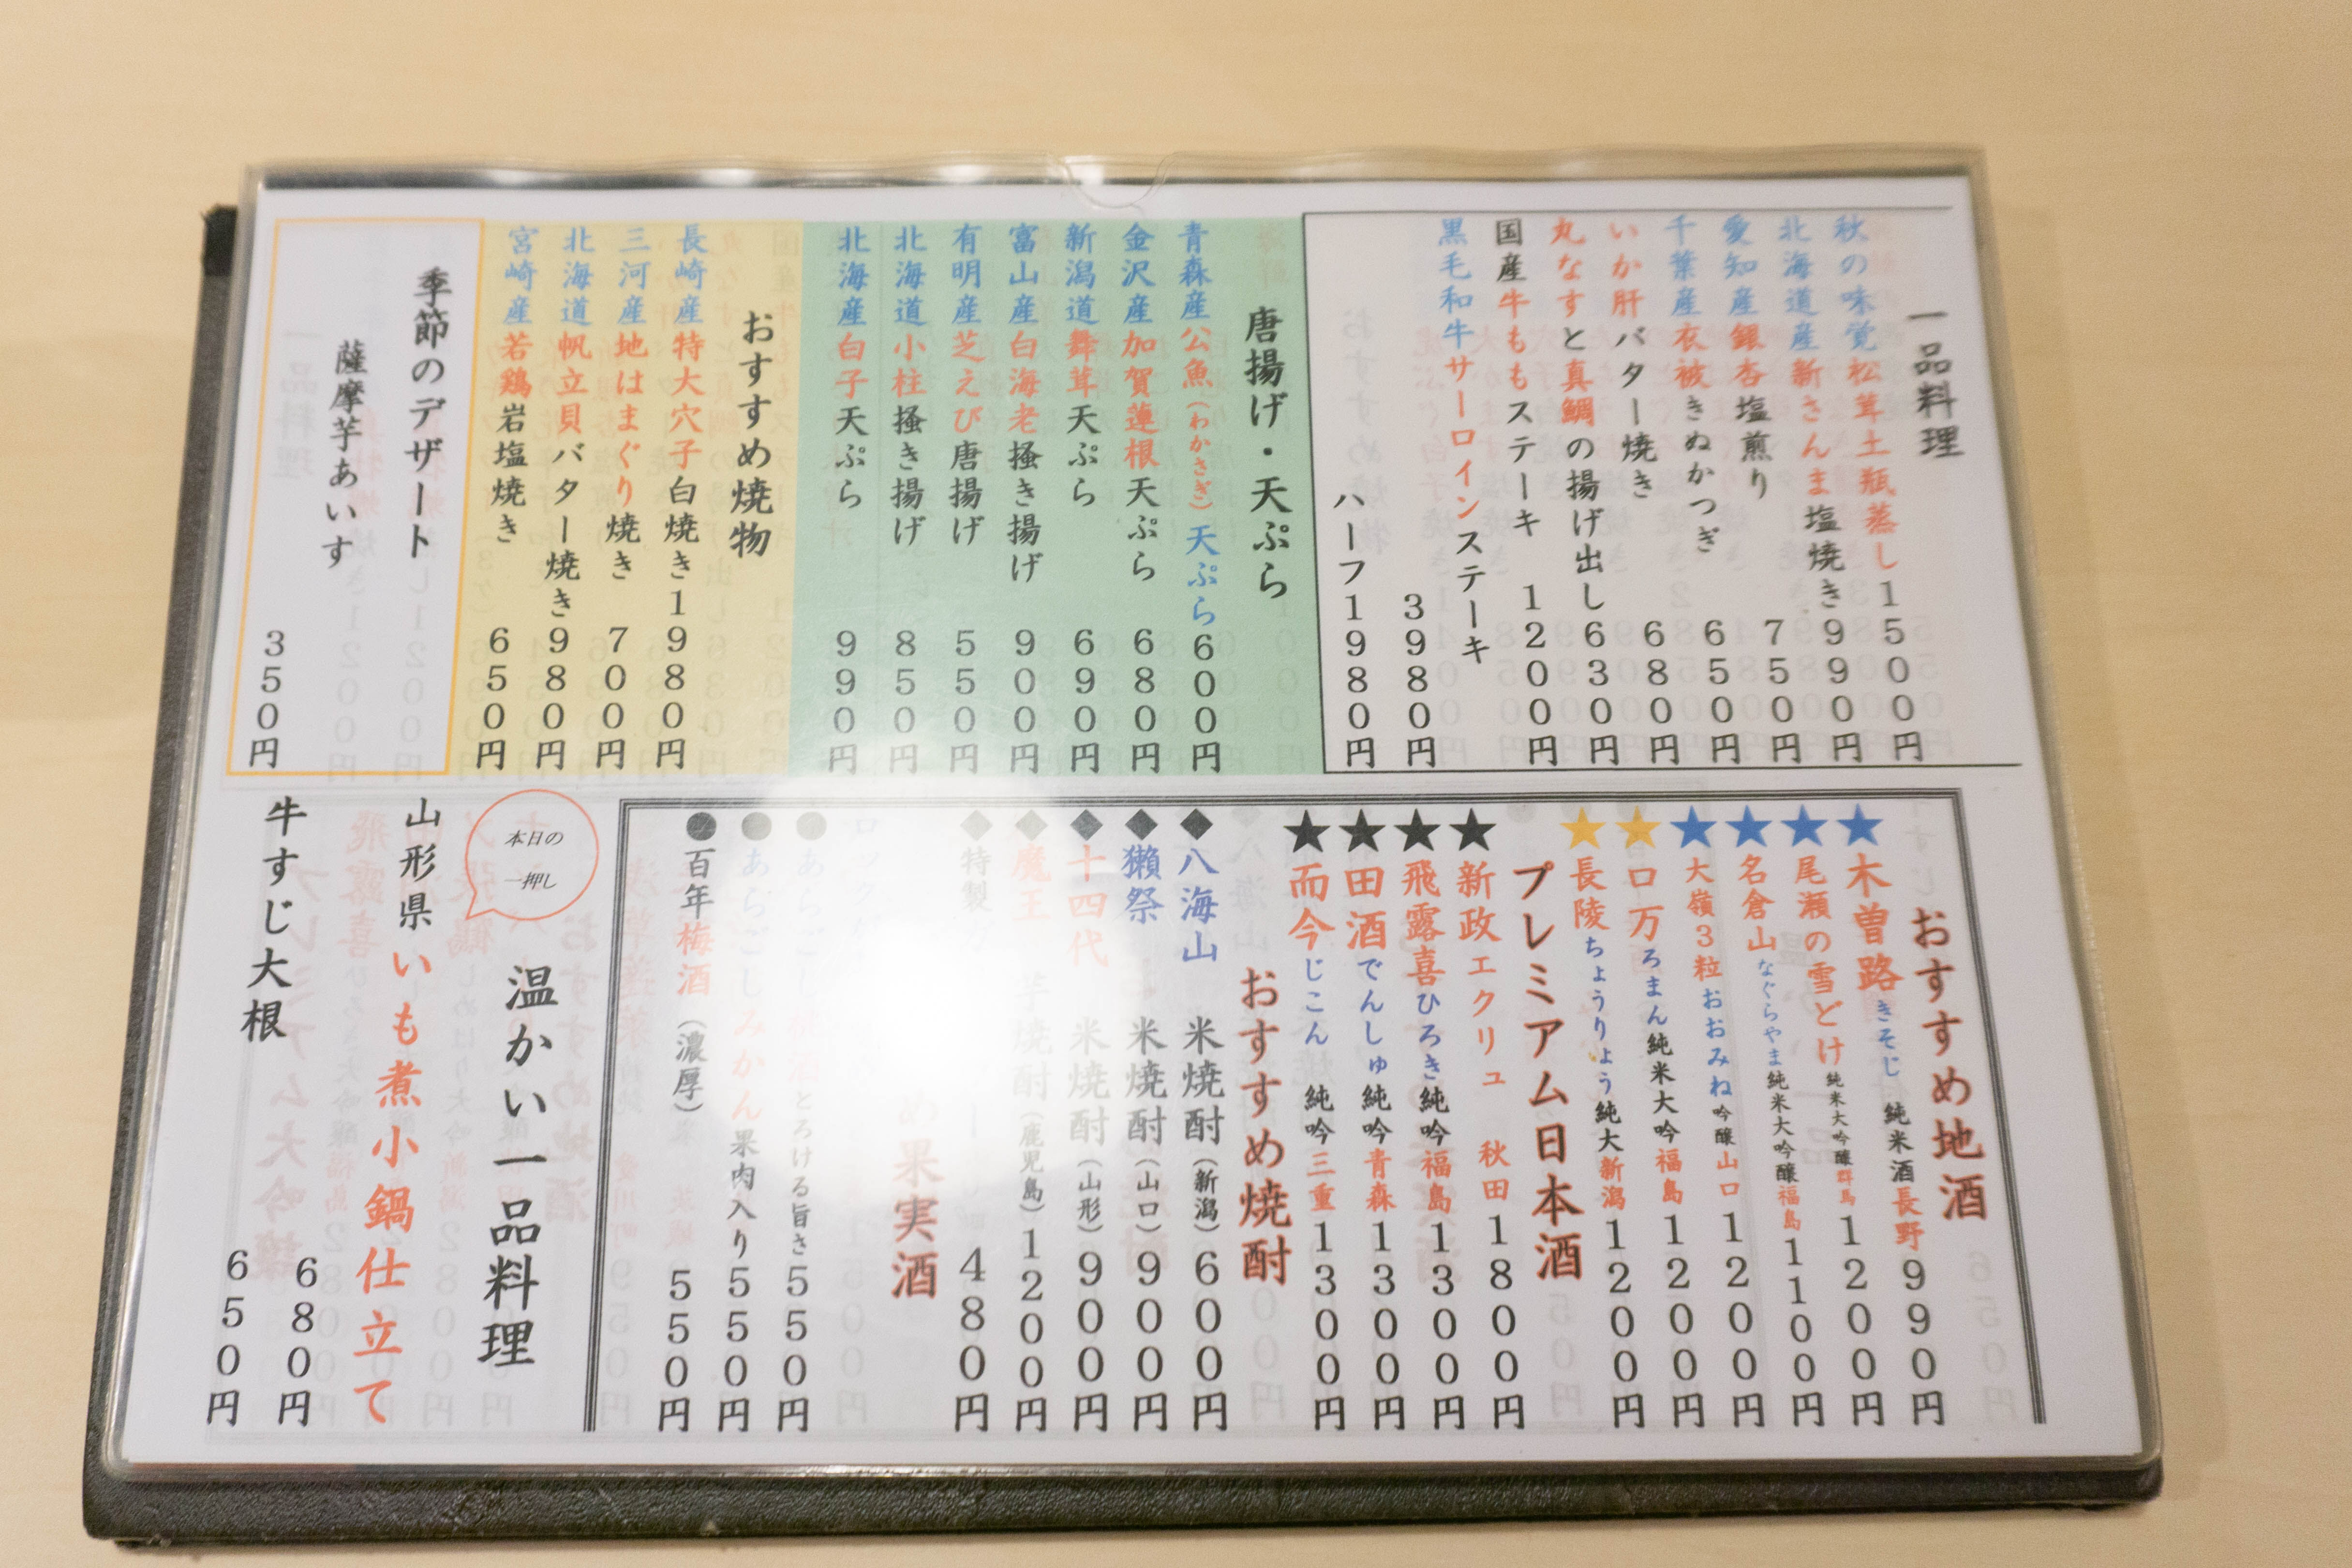 一品料理
秋の味覚 松茸土瓶蒸し 1500円
北海道産 新さんま塩焼き 990円
愛知産 銀杏塩煎り 750円
千葉産 衣被きぬかつぎ 650円
いか肝バター焼き 680円
丸なすと真鯛の揚げ出し 630円
国産牛ももステーキ 1200円
黒毛和牛サーロインステーキ
3980円
ハーフ1980円
唐揚げ・天ぷら
青森産公魚(わかさぎ)天ぷら 600円
金沢産加賀蓮根天ぷら 680円
新潟道舞茸天ぷら 690円
富山産白海老掻き揚げ 900円
有明産芝えび唐揚げ 550円
北海道小柱掻き揚げ 850円
北海産白子天ぷら 990円
おすすめ焼物
長崎産特大穴子白焼き1980円
三河産地はまぐり焼き 700円
北海道帆立貝バター焼き980円
宮崎産若鶏岩塩焼き 650円
季節のデザート
薩摩芋あいす
350円
おすすめ地酒
★木曽路きそじ 純米酒長野990円
★尾瀬の雪どけ純米大吟醸群馬1200円
★名倉山なぐらやま純米大吟醸福島1100円
★大嶺3粒おおみね吟醸山口1200円
★ロ万ろまん純米大吟福島1200円
★長陵ちょうりょう純大新潟1200円
プレミアム日本酒
★新政エクリュ 秋田1800円
★飛露喜ひろき純吟福島1300円
★田酒でんしゅ純吟青森1300円
★而今じこん 純吟三重1300円
おすすめ焼酎
◆八海山 米焼酎(新潟)600円
◆獺祭 米焼酎(山口)900円
◆十四代 米焼酎(山形)900円
◆魔王 芋焼酎(鹿児島)1200円
◆特製 480円
め果実酒
●あらごし 酒とろける旨さ550円
●あらごしみかん果肉入り550円
●百年梅酒(濃厚) 550円
温かい一品料理
本日の
一押し
山形県いも煮小鍋仕立て
680円
牛すじ大根
650円